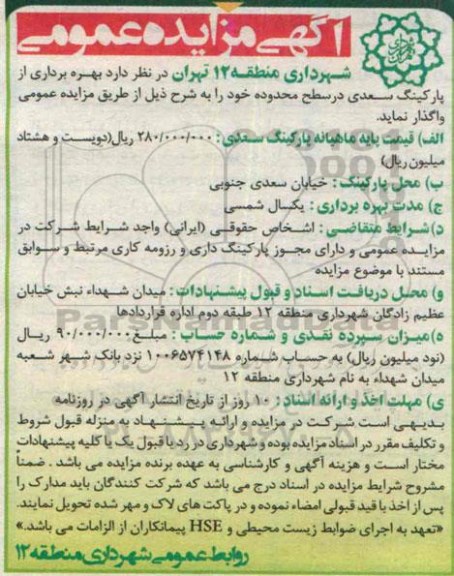 آگهی مزایده عمومی
شهرداری منطقه ۱۲ تهران در نظر دارد بهره برداری از
پارکینگ سعدی درسطح محدوده خود را به شرح ذیل از طریق مزایده عمومی
واگذار نماید.
الف) قیمت پایه ماهیانه پارکینگ سعدی: ۲۸۰/۰۰۰/۰۰۰ ریال(دویست و هشتاد
میلیون ریال)
ب) محل پارکینگ: خیابان سعدی جنوبی
ج) مدت بهره برداری: یکسال شمسی
د)شرایط متقاضی: اشخاص حقوقی (ایرانی) واجد شرایط شرکت در
مزایده عمومی و دارای مجوز پارکینگ داری و رزومه کاری مرتبط و سوابق
مستند با موضوع مزایده
و) محل دریافت اسناد و قبول پیشنهادات: میدان شهداء نبش خیابان
عظیم زادگان شهرداری منطقه ۱۲ طبقه دوم اداره قراردادها
ه)میزان سپرده نقدی و شماره حساب: مبلغ: ۹۰/۰۰۰/۰۰۰ ریال
(نود میلیون ریال) به حساب شماره ۱۰۰۶۵۷۴۱۴۸ نزد بانک شهر شعبه
میدان شهداء به نام شهرداری منطقه ۱۲
ی) مهلت اخذ و ارائه اسناد: ۱۰ روز از تاریخ انتشار آگهی در روزنامه
بدیهی است شرکت در مزایده و ارائه پیشنهاد به منزله قبول شروط
و تکلیف مقرر در اسناد مزایده بوده و شهرداری در رد یا قبول یک یا کلیه پیشنهادات
مختار است و هزینه آگهی و کارشناسی به عهده برنده مزایده می باشد. ضمناً
مشروح شرایط مزایده در اسناد درج می باشد که شرکت کنندگان باید مدارک را
پس از اخذ با قید قبولی امضاء نموده و در پاکت های لاک و مهر شده تحویل نمایند.
«تعهد به اجرای ضوابط زیست محیطی و HSE پیمانکاران از الزامات می باشد.»
روابط عمومی شهرداری منطقه ۱۲
ParsNamadData